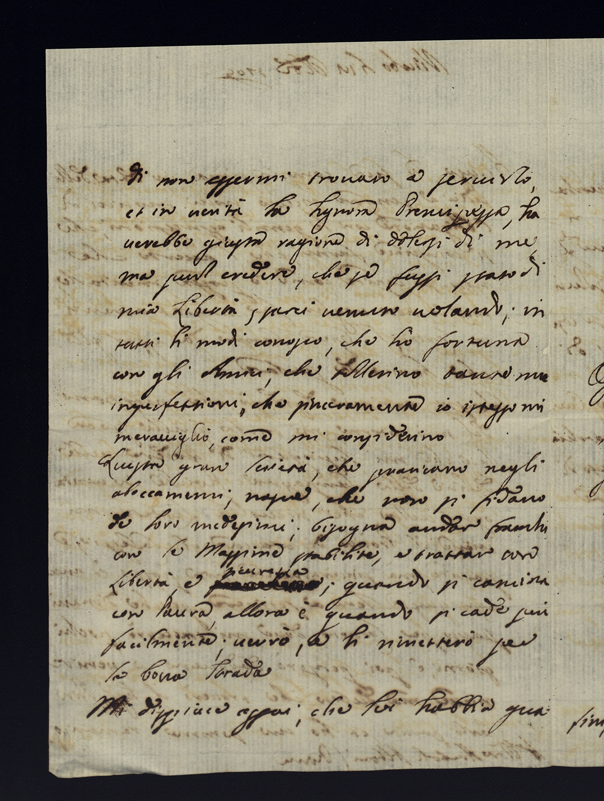 di non essermi trovato a servirlo,
et in verità la Signora Prencipessa, ha
verebbe giusta ragione di dolersi di me,
ma può credere, che se fussi stato di
mia Libertà, sarei venuto volando; in
tutti li modi conosco, che hò fortuna
con gli Amici, che tollerino tante mie
imperfettioni, che sinceramente io istesso mi
meraviglio, come mi considerino
Questa gran secretà, che praticano negli
aboccamenti, nasce, che non si fidano
de loro medesimi; bisogna andar franchi
con le Massime stabilite, e trattar con
Libertà e sicurezza; quando si camina
con paura, allora è quando si cade più
facilmente; verrò, e li rimetterò per
la bona strada
Mi dispiace assai, che lei habbia qua